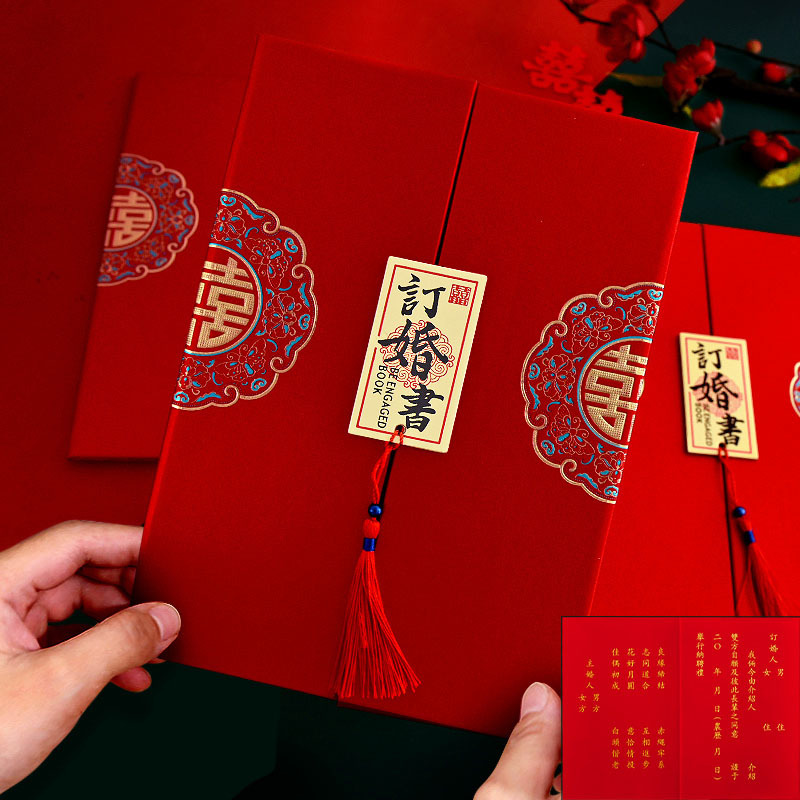 囍
囍
訂婚書
BE ENGAGED
BOOK
囍
囍
囍
訂婚書
BE ENGAGED
BOOK
訂婚人 男 住
女 住
我倆今由介紹人 介紹
雙方自願及彼此長輩之同意 謹于
二〇 年 月 日(農曆 月 日)
舉行納聘禮
良緣締結 赤繩牢系
志同道合 互相進步
花好月圓 意恰情投
佳偶初成 白頭偕老
主婚人 男方
女方